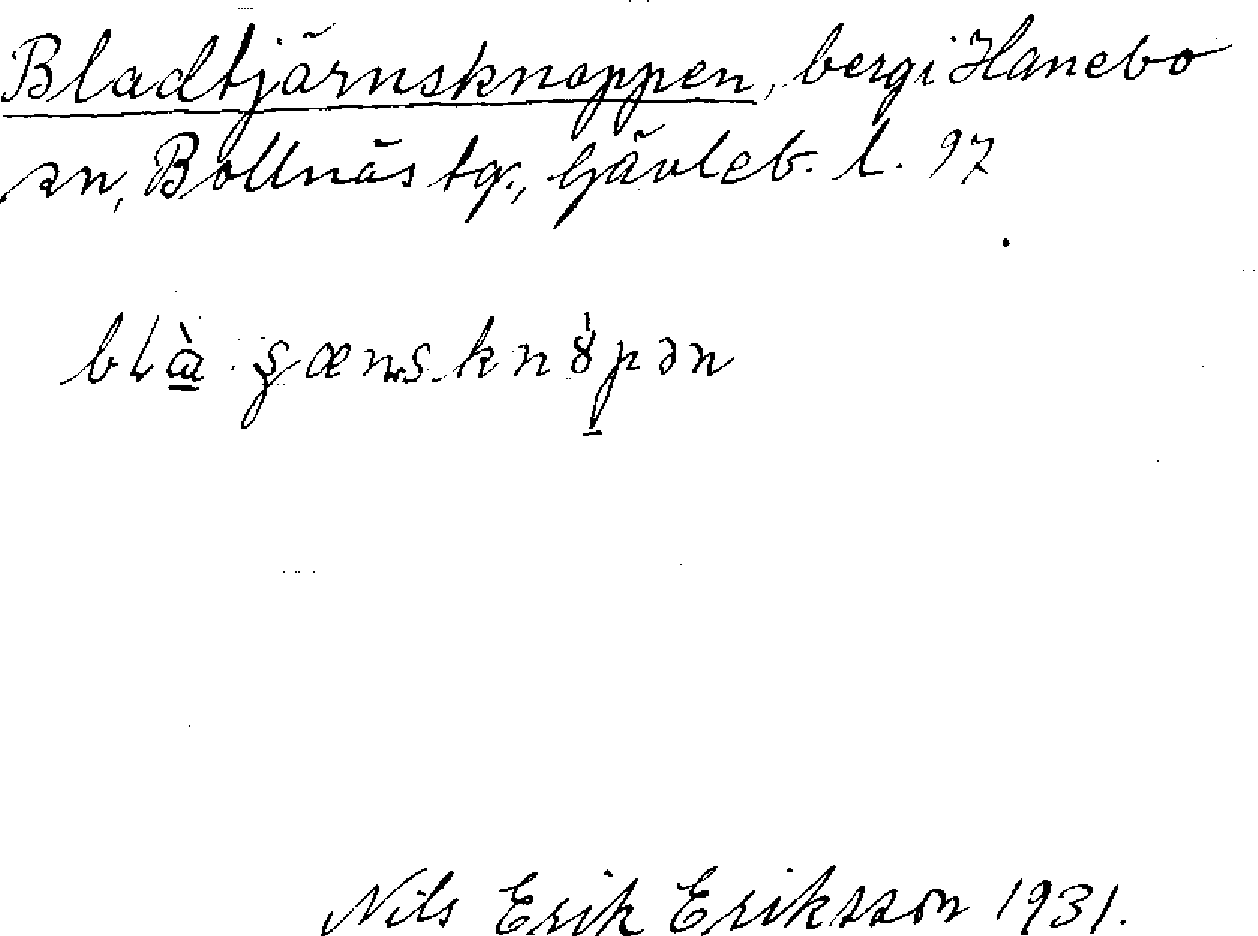 Bladtjärnsknoppen, berg i Hanebo
sn, Bollnäs tg., Gävleb. l. 97
Nils Erik Eriksson 1931.